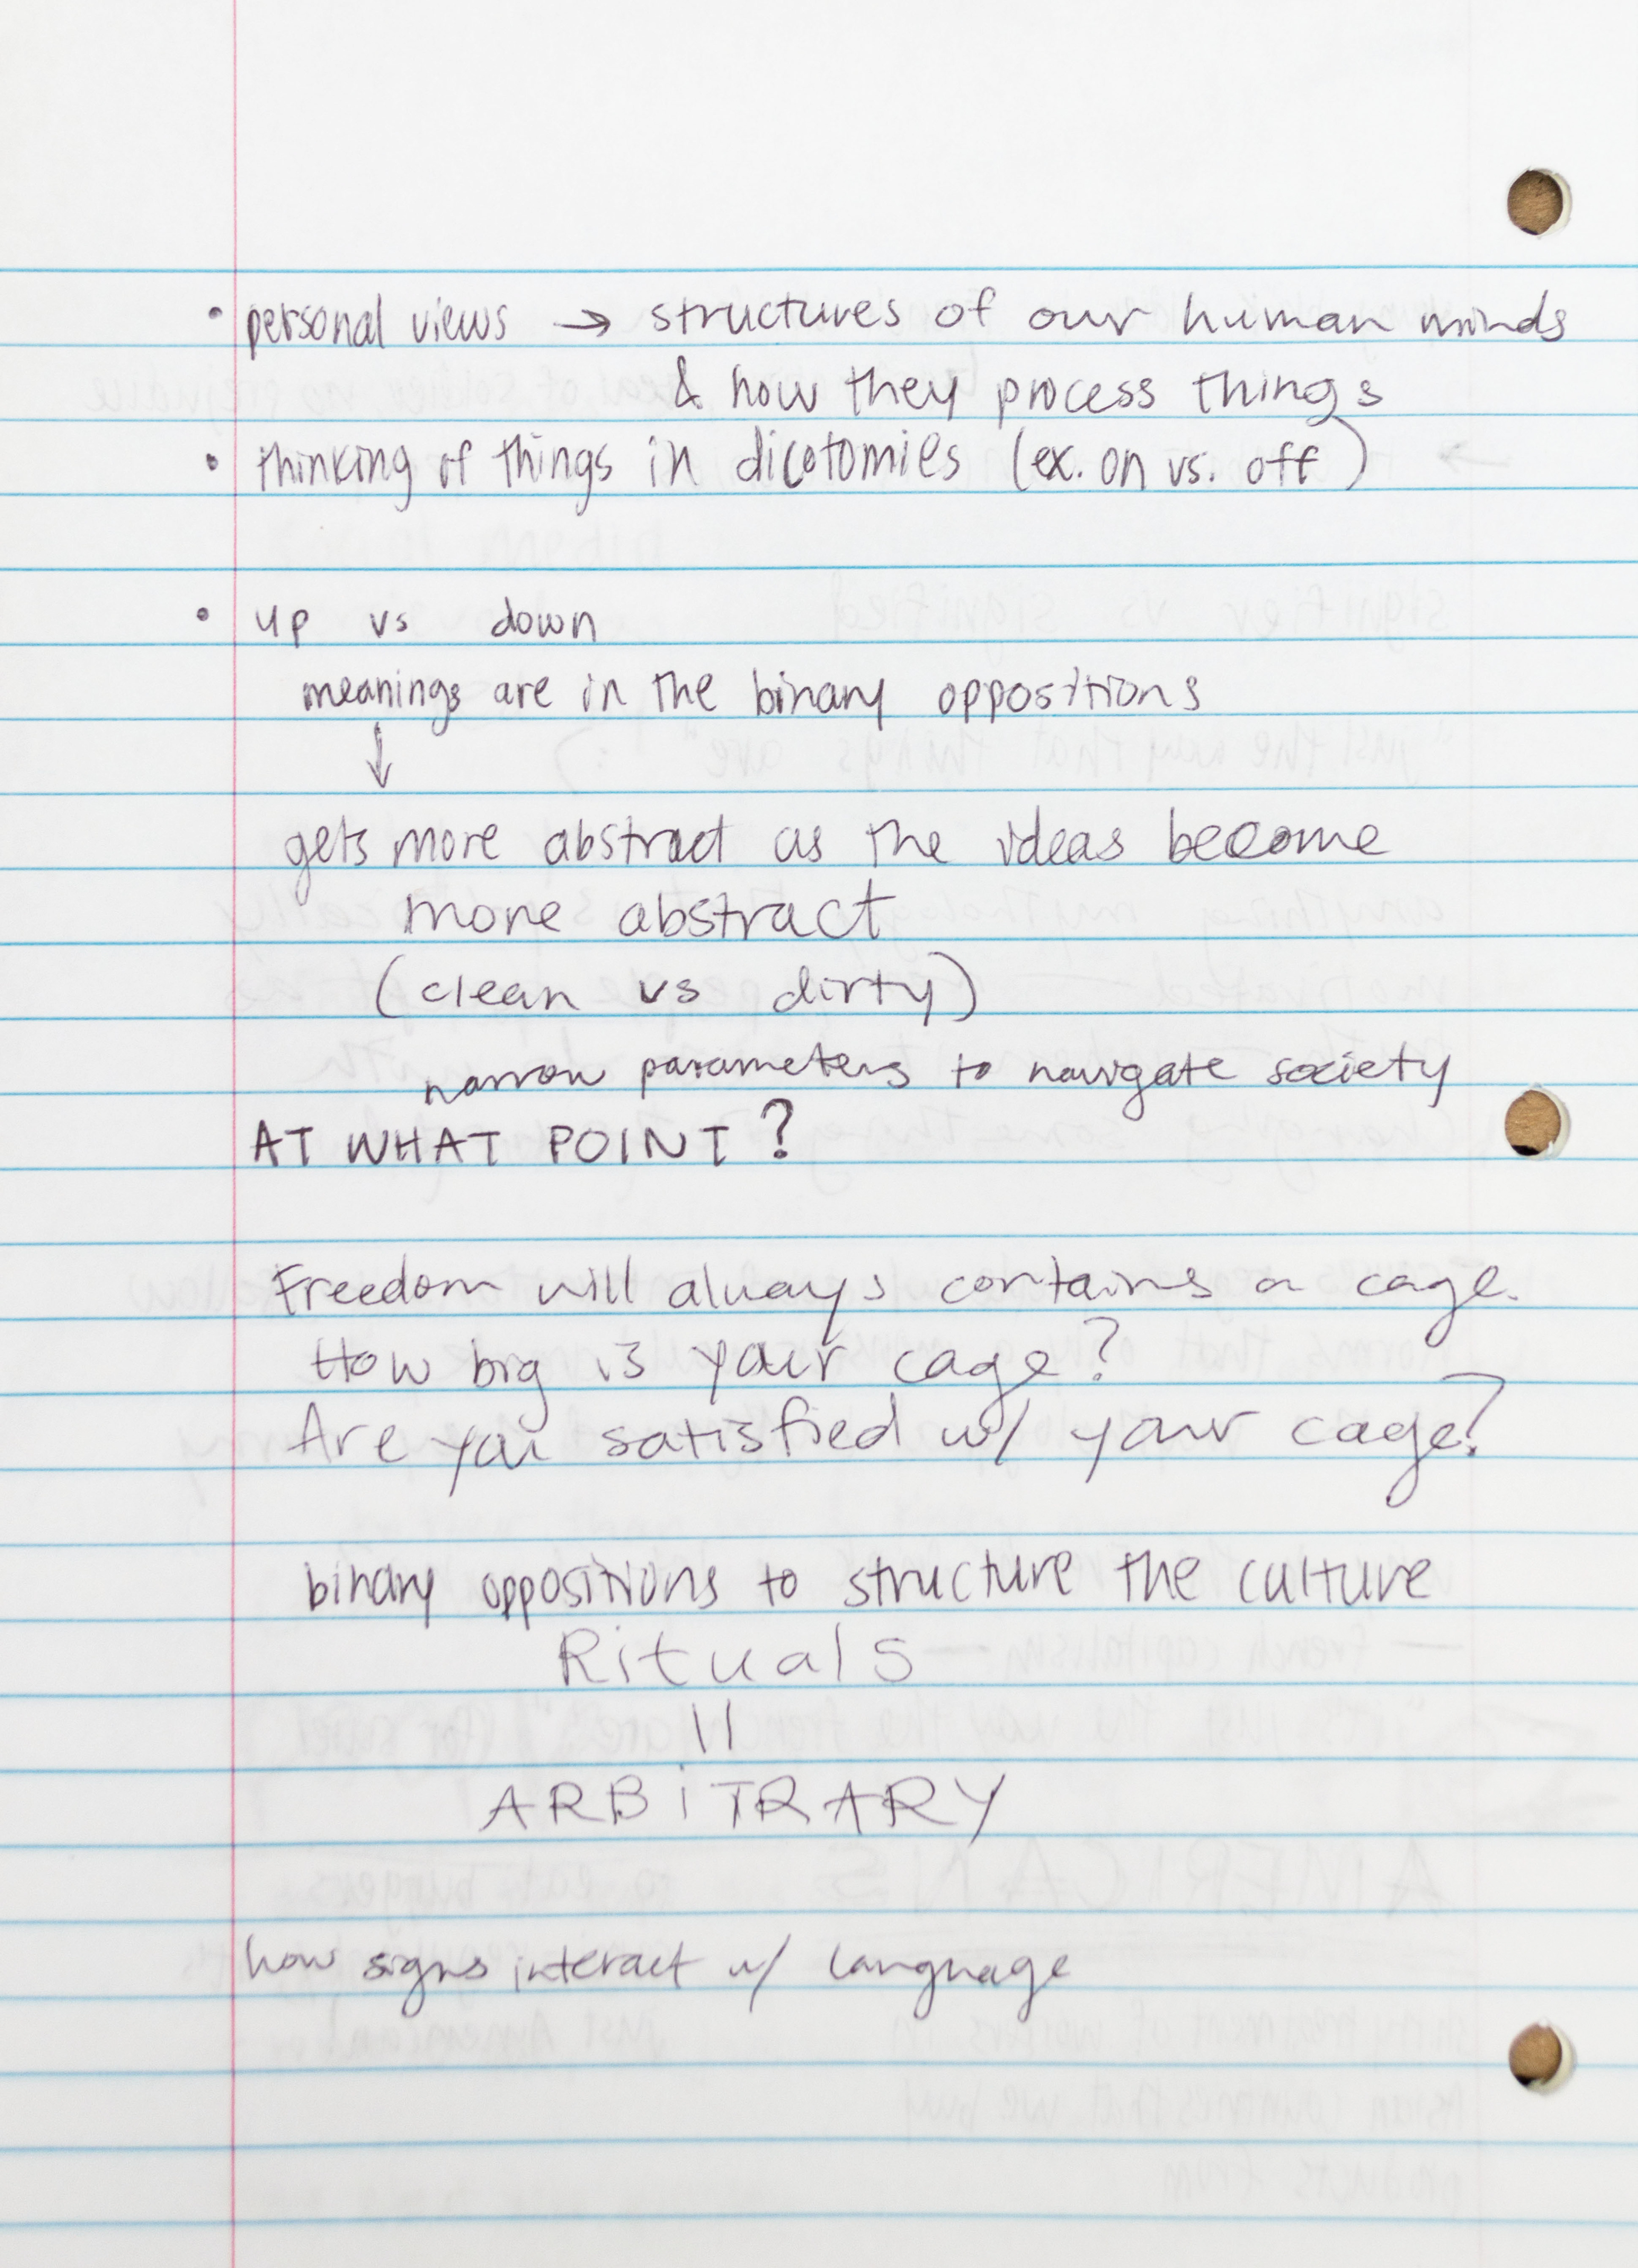 • personal views → structures of our human minds
& how they process things
• thinking of things in dicotomies (ex. on vs. off)
• up vs down
meanings are in the binary oppositions
↓
gets more abstract as the ideas become
more abstract
(clean vs dirty)
narrow parameters to navigate society
AT WHAT POINT?
Freedom will always contains a cage.
How big is your cage?
Are you satisfied w/ your cage?
binary oppositions to structure the culture
Rituals
||
ARBiTRARY
how signs interact w/ language